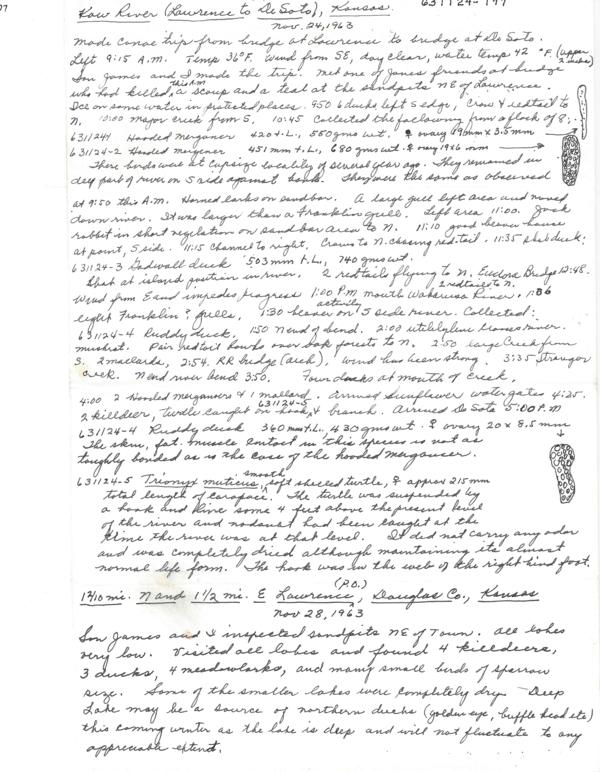 77
631124-177
Kaw River (Lawrence to DeSoto), Kansas.
Nov. 24, 1963
Made canoe trip from bridge at Lawrence to bridge at DeSoto.
Left 9:15 A.M. Temp 36°F. Wind from SE, day clear, water temp 42 °F. (upper
Son James and I made the trip. Met one of James friends at bridge
who had killed, this A.M. a scaup and a teal at the sandpits NE of Lawrence.
Ice on some water in protected places. 950 6 ducks, left S edge, Crow & redtail to
N, 10:00 major creek from S, 10:45 Collected the following from a flock of 8:
631124-1 Hooded merganser 420 t.L., 550 gms wt. ♀ ovary 19mm x 3.5mm
631124-2 Hooded merganser 451 mm t.L., 680 gms wt. ♀ ovary 19x6 mm
These birds were at capsize locality of several year ago. They remained in
deep part of river on S side against bank. They were the same as observed
at 9:50 this A.M. Horned larks on sandbar. A large gull left area and moved
down river. It was larger than a Franklin gull. Left area 11:00. Jack
rabbit in short vegetation on sand bar area to N. 11:10 good beaver house
at point, S side. 11:15 Channel to right. Crows to N. chasing red-tail. 11:35 shot duck:
631124-3 Gadwall duck 503mm t.L., 740 gms wt.
Shot at island position in river. 2 redtails flying to N. Eudora Bridge 12:48.
Wind from E and impedes progress 1:00 P.M. mouth Wakarusa River, 2 redtails to N. 1:06
eight Franklin? gulls, 1:30 beaver actively on S side river. Collected:
631124-4 Ruddy duck, 150 N end of bend. 2:00 utility line across river.
muskrat. Pair redtail hawks over oak forests to N. 2:50 large Creek from
S. 2 mallards, 2:54. RR bridge (arch), wind has been strong. 3:35 Stranger
creek. N end river bend 3:50. Four ducks at mouth of creek,
4:00 2 Hooded mergansers & 1 mallard. Arrived Sunflower water gates 4:25.
2 killdeer, turtle caught 631124-5 on hook & branch. Arrived DeSoto 5:00 P.M
631124-4 Ruddy duck 360 mm t.L., 430 gms wt. ♀ ovary 20 x 8.5 mm
The skin, fat, muscle contact in this species is not as
toughly bonded as is the case of the hooded merganser.
631124-5 Trionyx muticus, smooth soft shelled turtle, ♀ approx 215mm
total length of carapace. The turtle was suspended by
a hook and line some 4 feet above the present level
of the river and no doubt had been caught at the
time the river was at that level. It did not carry any odor
and was completely dried although maintaining its almost
normal life form. The hook was in the web of the right hind foot.
1 7/10 mi. N and 1 1/2 mi. E Lawrence (P.O.), Douglas Co., Kansas
Nov 28, 1963
Son James and I inspected sandpits NE of Town. All lakes
very low. Visited all lakes and found 4 killdeers,
3 ducks, 4 meadowlarks, and many small birds of sparrow
size. Some of the smaller lakes were completely dry. Deep
Lake may be a source of northern ducks (golden eye, buffle head etc)
this coming winter as the lake is deep and will not fluctuate to any
appreciable extent.